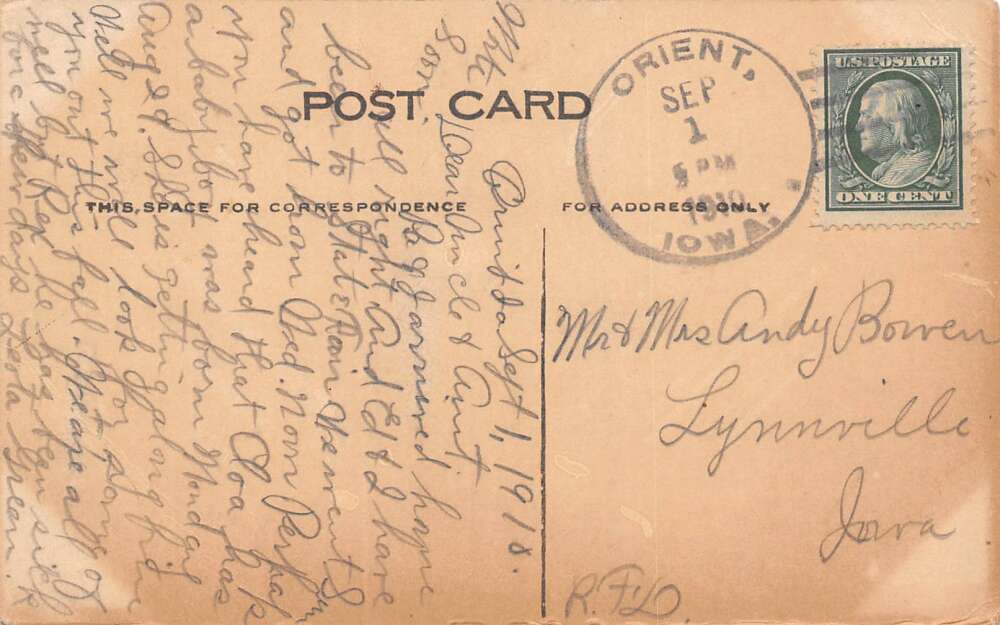 POST CARD
THIS SPACE FOR CORRESPONDENCE
FOR ADDRESS ONLY
ORIENT,
SEP
1
PM
1910
IOWA.
U.S. POSTAGE
ONE CENT
Mr & Mrs Andy Bowen
Lynnville
Iowa
R.F.D.
Orient Ia Sept 1, 1910.
Dear Uncle & Aunt
We arrived home
all right and Ed & I have
been to State Fair. We went Sun
and got home Wed. Now Perhaps
you have heard that Cloa has
a baby boy was born Monday
Aug 22. She is getting along fine
Well we will look for some of
you out this fall. We are all
well but Rex he has been sick
for a few days. Leola Green.